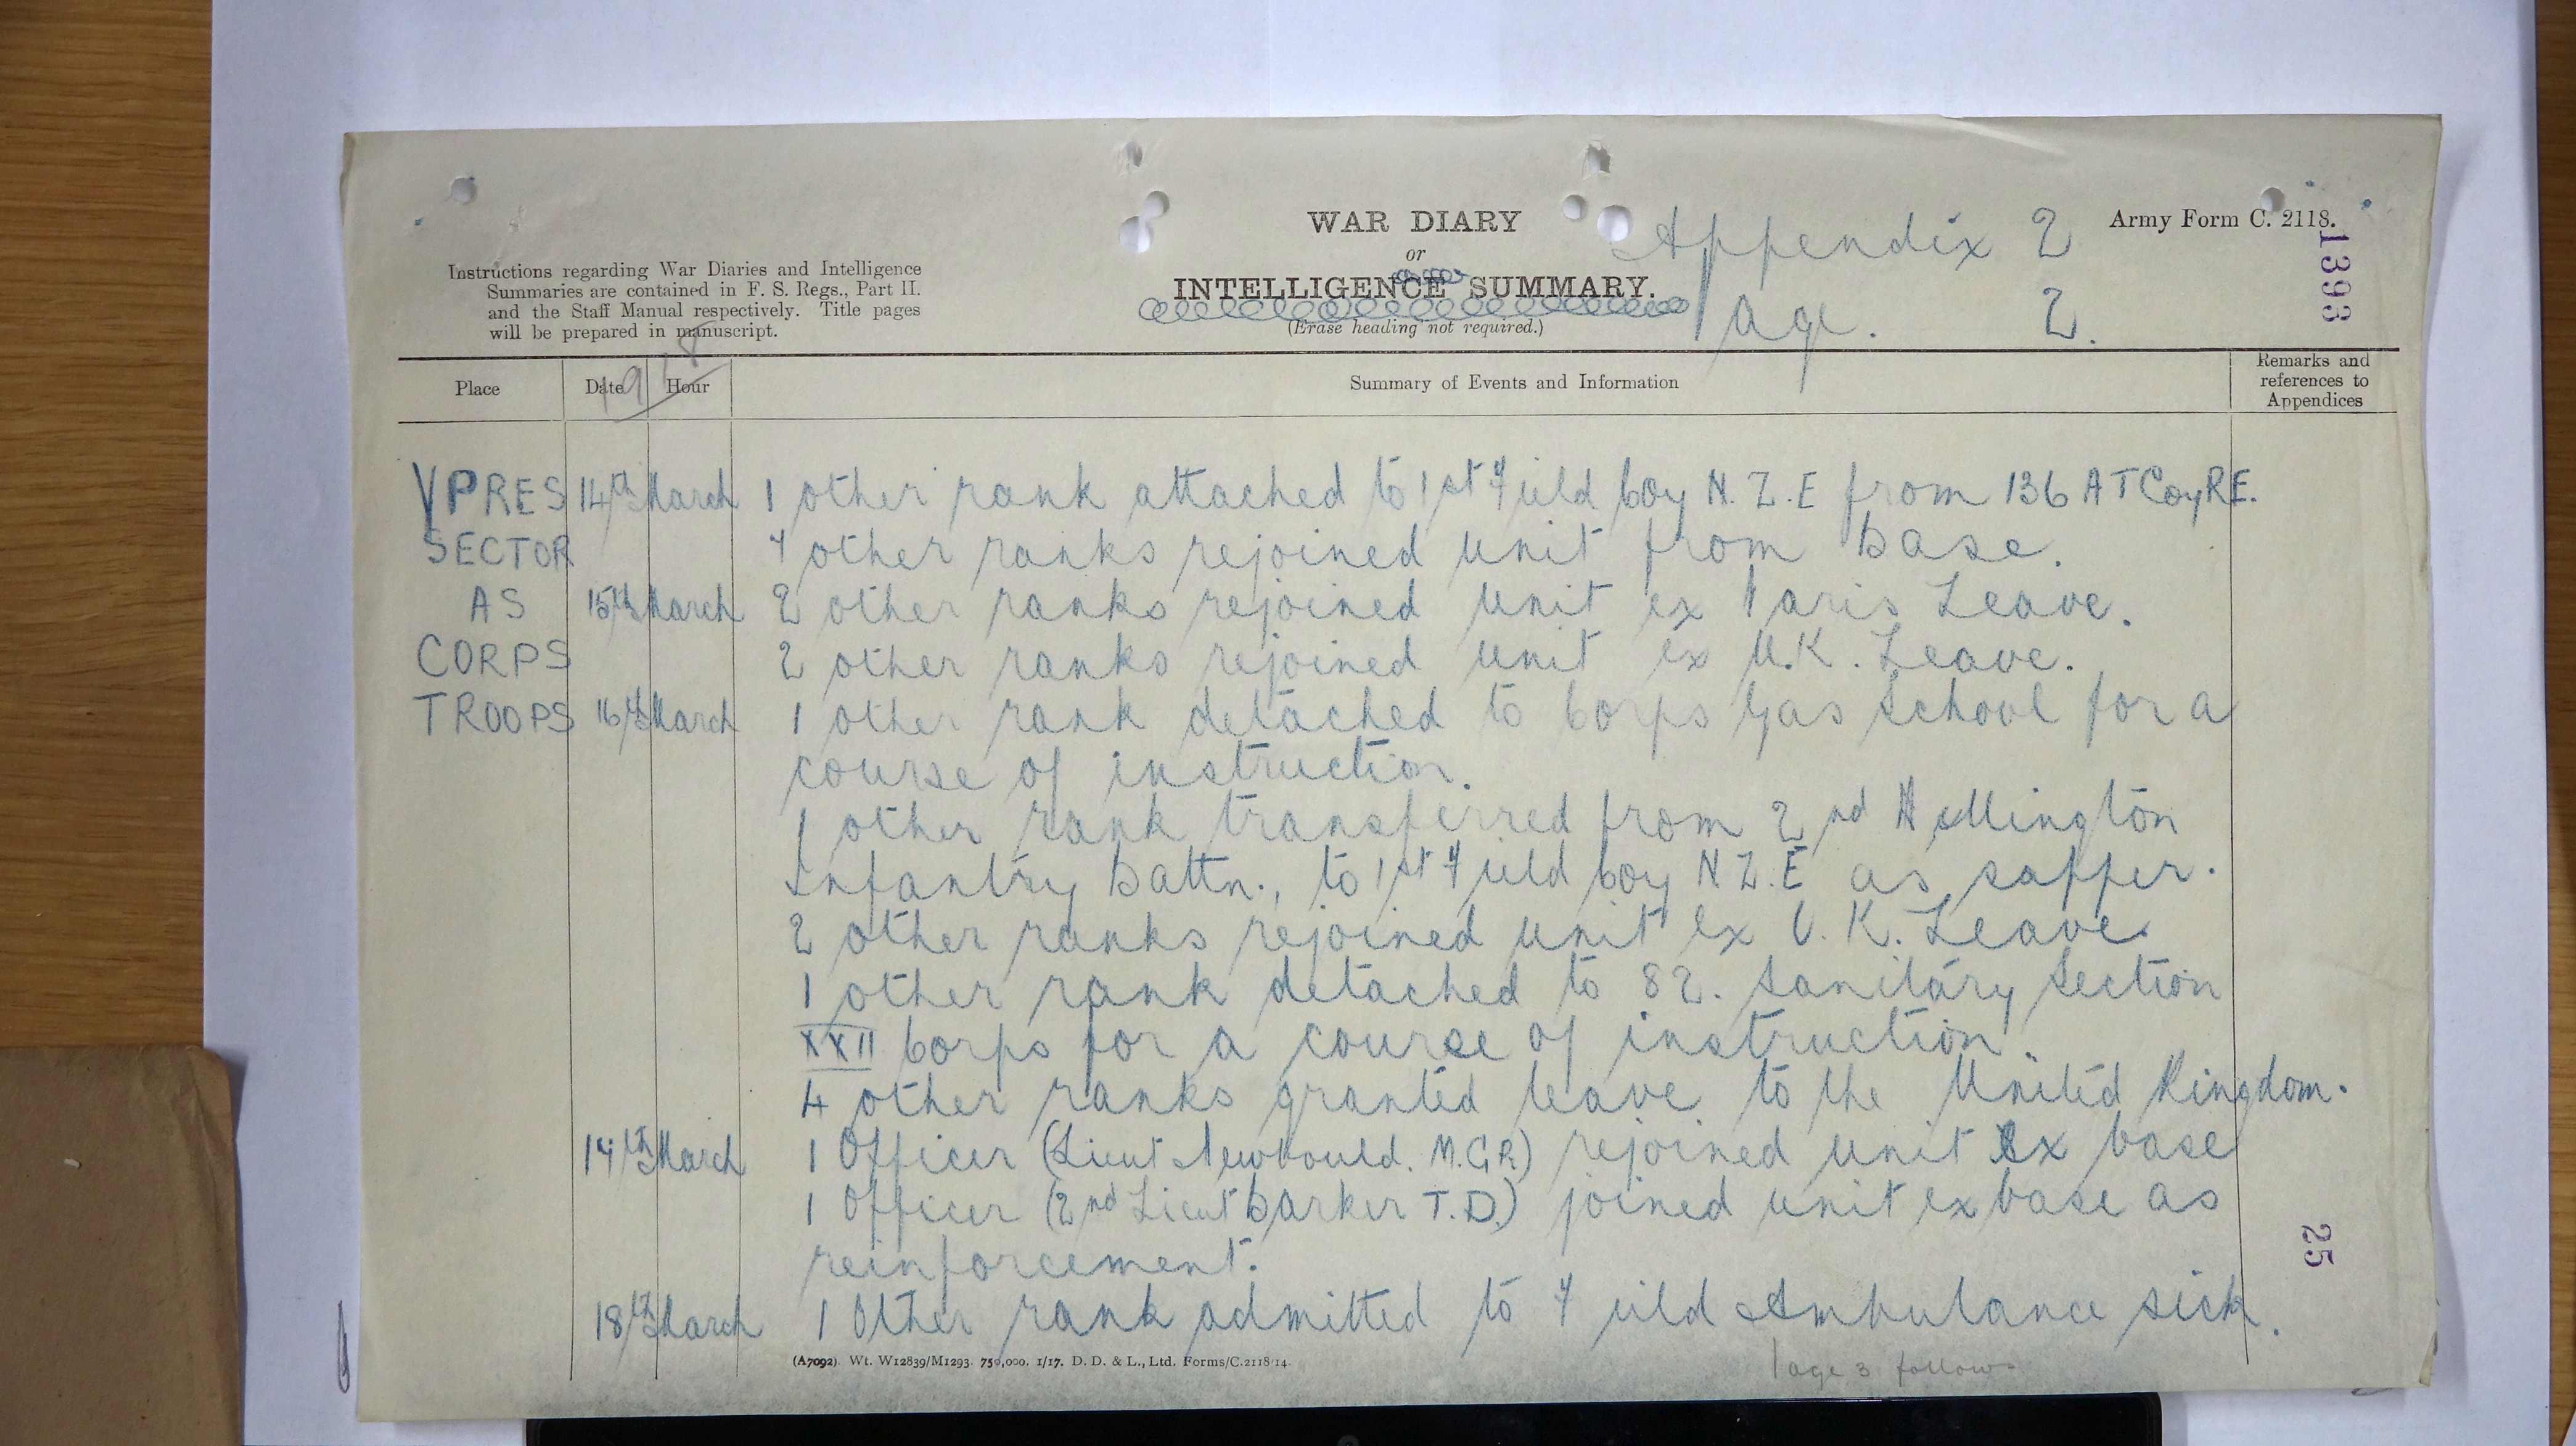 WAR DIARY
or
INTELLIGENCE SUMMARY.
(Erase heading not required.)
Appendix 2
Page. 2.
Army Form C. 2118.
1393
Instructions regarding War Diaries and Intelligence
Summaries are contained in F. S. Regs., Part II.
and the Staff Manual respectively. Title pages
will be prepared in manuscript.
1918
Place Date Hour Summary of Events and Information Remarks and references to Appendices
YPRES 14th March 1 other rank attached to 1st Field Coy N.Z.E from 136 AT Coy RE.
SECTOR 7 other ranks rejoined unit from Base.
AS 15th March 2 other ranks rejoined unit ex Paris Leave.
CORPS 2 other ranks rejoined unit ex U.K. Leave.
TROOPS 16th March 1 other rank detached to Corps Gas School for a
course of instruction.
1 other rank transferred from 2nd Wellington
Infantry Battn., to 1st Field Coy N.Z.E as sapper.
2 other ranks rejoined unit ex U.K. Leave.
1 other rank detached to 82. Sanitary Section
XXII Corps for a course of instruction.
4 other ranks granted leave to the United Kingdom.
17th March 1 Officer (Lieut Newbould. M.G.R) rejoined unit Ex base
1 Officer (2nd Lieut Barker T.D.) joined unit ex base as
reinforcement.
18th March 1 Other rank admitted to Field Ambulance sick.
25
(A7092). Wt. W12839/M1293. 750,000. 1/17. D. D. & L., Ltd. Forms/C.2118/14.
Page 3 follows